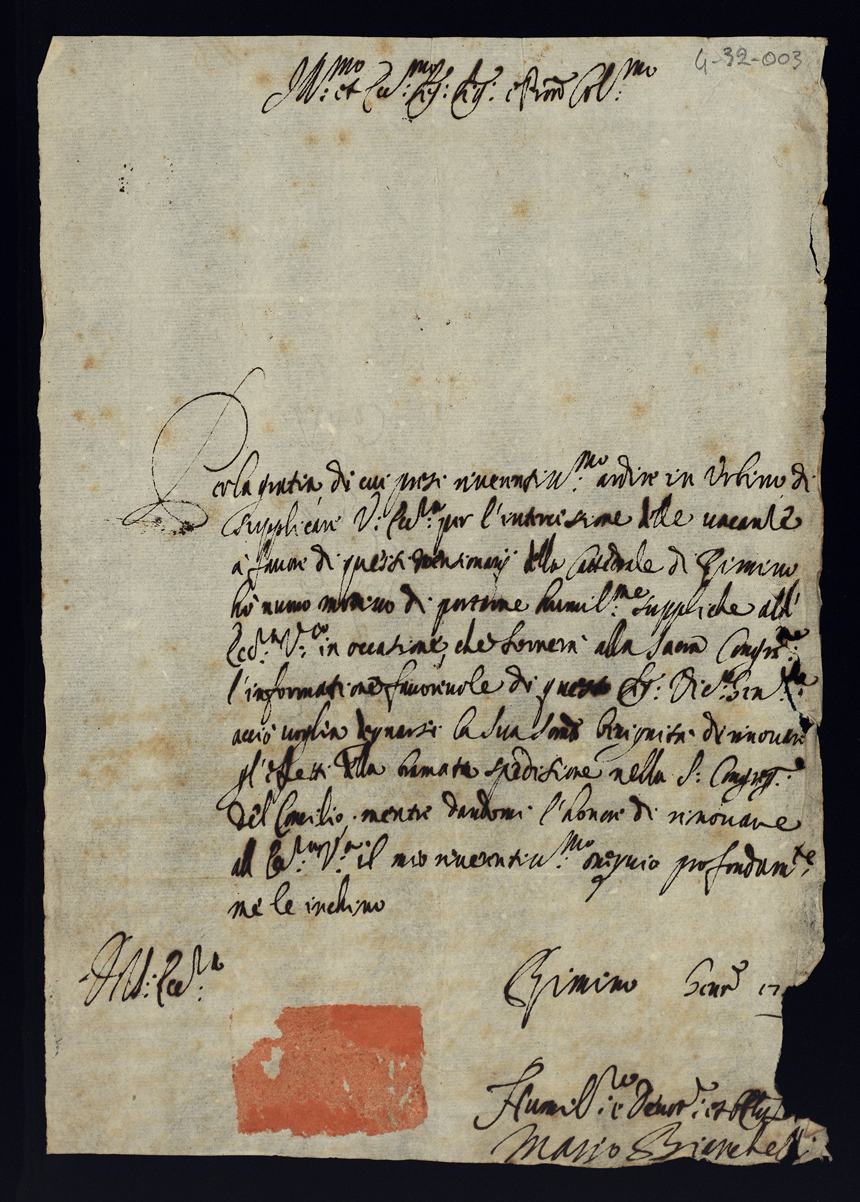 4-32-003
Ill:mo et Ecc:mo Sig: Sig: e Pron Col:mo
Per la gratia di cui presi riverentiss:mo ardire in Urbino di
supplicare V: Ecc:za per l'intercessione delle vacanti
à favore di questi Mansionarij della Cattedrale di Rimino
hò nuovo motivo di portarne humil:me suppliche all'
Ecc:za V:ra in occasione, che tornerà alla Sacra Congreg:ne
l'informatione favorevole di questo Sig:
acciò voglia degnarsi la sua benignità di rinovare
gl'effetti della bramata speditione nella S: Congreg:e
del Concilio. mentre dandomi l'honore di rinovare
all' Ecc:za V:ra il mio riverentiss:mo ossequio profondam:te
me le inchino
Ill: Ecc:za
Rimino
Humil:o e Devot: et Obl
Mario Bianchelli